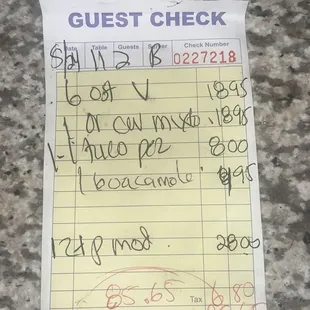 GUEST CHECK
Date Table Guests Server Check Number
11 2 B 0227218
6 ost V 1895
1 or cev mixto 1895
1-1 Taco pez 800
1 Guacamole 995
mod. 2800
85.65 Tax 6.80